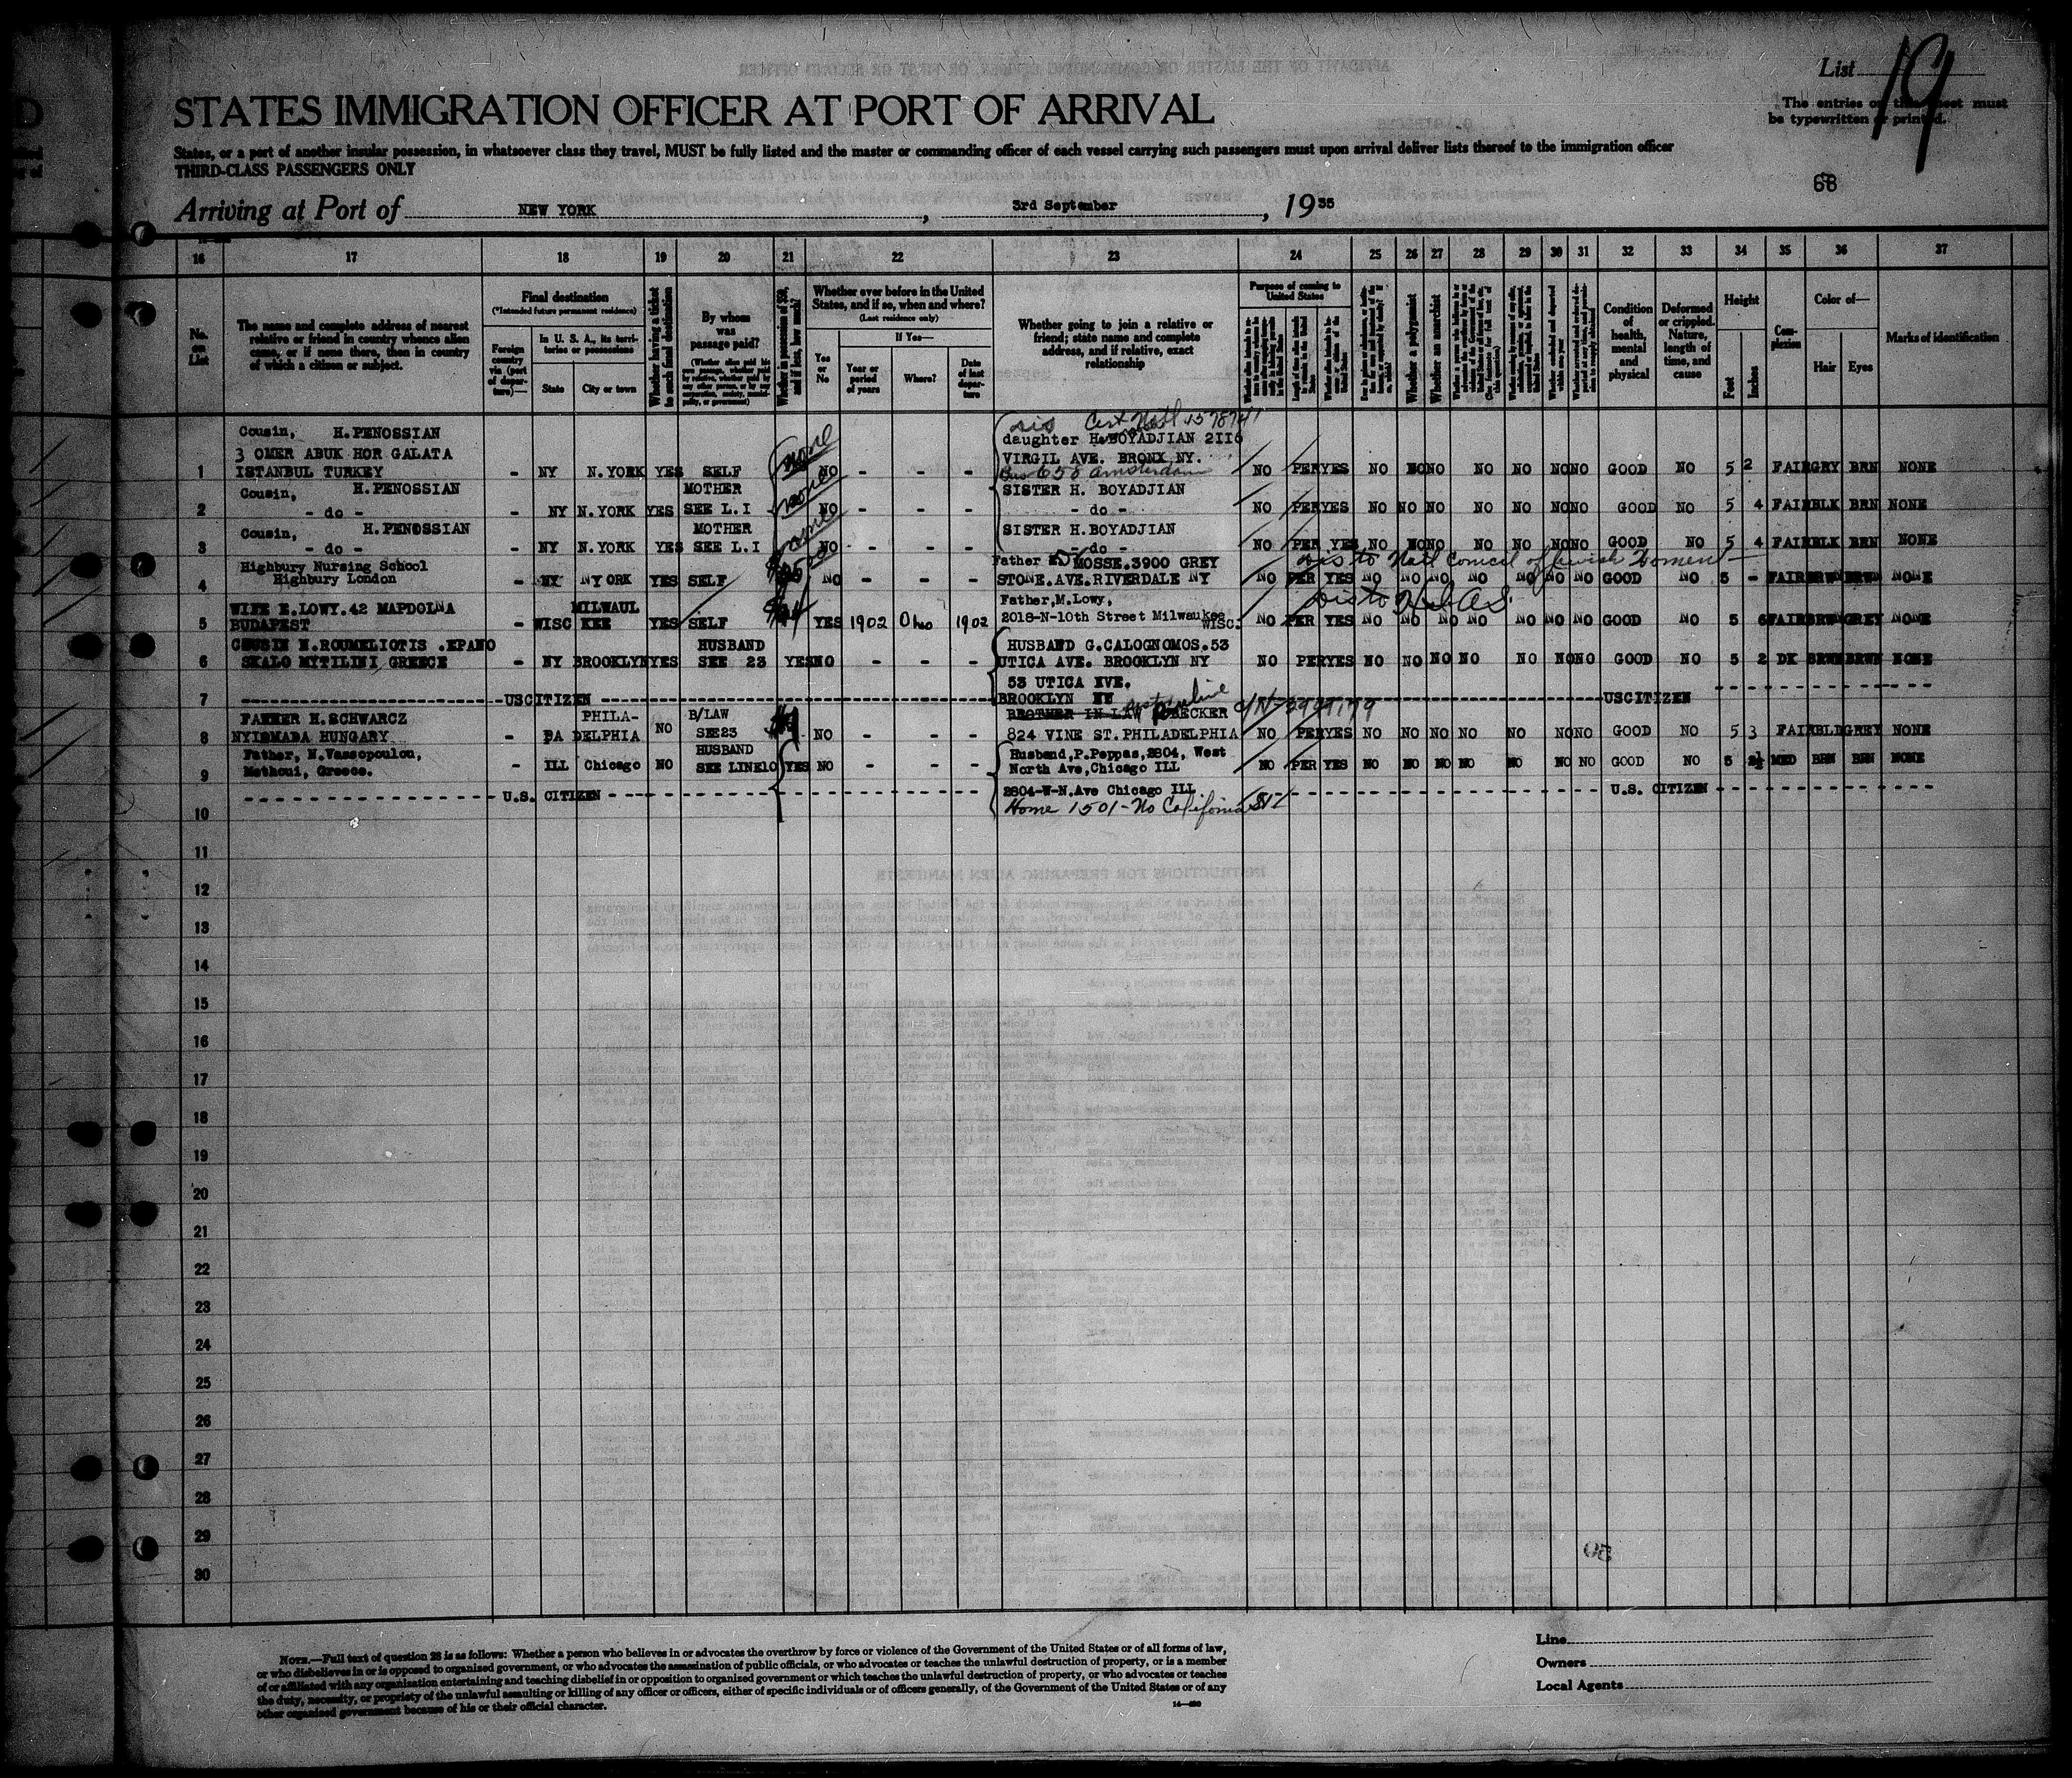 List 19
STATES IMMIGRATION OFFICER AT PORT OF ARRIVAL
The entries on this sheet must
be typewritten or printed.
States, or a port of another insular possession, in whatsoever class they travel, MUST be fully listed and the master or commanding officer of each vessel carrying such passengers must upon arrival deliver lists thereof to the immigration officer
THIRD-CLASS PASSENGERS ONLY
66
Arriving at Port of NEW YORK, 3rd September, 1935
16 17 18 19 20 21 22 23 24 25 26 27 28 29 30 31 32 33 34 35 36 37
No. on List
The name and complete address of nearest relative or friend in country whence alien came, or if none there, then in country of which a citizen or subject.
Final destination
(*Intended future permanent residence)
Foreign country via (port of departure)—
In U. S. A., its territories or possessions
State
City or town
Whether having a ticket to such final destination
By whom was passage paid?
Whether in possession of $50, and if less, how much?
Whether ever before in the United States, and if so, when and where?
(Last residence only)
Yes or No
If Yes—
Year or period of years
Where?
Date of last departure
Whether going to join a relative or friend; state name and complete address, and if relative, exact relationship
Purpose of coming to United States
Whether a polygamist
Whether an anarchist
Condition of health, mental and physical
Deformed or crippled. Nature, length of time, and cause
Height
Feet
Inches
Complexion
Color of—
Hair
Eyes
Marks of identification
sis Cert Natl
Cousin, H.PENOSSIAN daughter H.BOYADJIAN 2II6
3 OMER ABUK HOR GALATA VIRGIL AVE. BRONX NY.
1 ISTANBUL TURKEY - NY N.YORK YES SELF none NO - - - Bus 658 Amsterdam NO PER YES NO NO NO NO NO NO NO GOOD NO 5 2 FAIR GRY BRN NONE
Cousin, H.PENOSSIAN MOTHER SISTER H. BOYADJIAN
2 - do - NY N.YORK YES SEE L.I none NO - - - - do - NO PER YES NO NO NO NO NO NO NO GOOD NO 5 4 FAIR BLK BRN NONE
Cousin, H.PENOSSIAN MOTHER SISTER H.BOYADJIAN
3 - do - - NY N.YORK YES SEE L.I none NO - - - - do - NO PER YES NO NO NO NO NO NO NO GOOD NO 5 4 FAIR BLK BRN NONE
Highbury Nursing School Father MOSSE.3900 GREY Dis to Natl Council of Jewish Women
4 Highbury London - NY NYORK YES SELF NO - - - STONE.AVE.RIVERDALE NY NO PER YES NO NO NO NO NO NO NO GOOD NO 5 - FAIR BRWN BRWN NONE
WIFE E.LOWY.42 MAPDOLNA MILWAUL Father,M.Lowy, Dis to HIAS
5 BUDAPEST - WISC KEE YES SELF YES 1902 Ohio 1902 2018-N-10th Street Milwaukee WISC. NO PER YES NO NO NO NO NO NO NO GOOD NO 5 6 FAIR BRWN GREY NONE
COUSIN N.ROUMELIOTIS .EPANO HUSBAND HUSBAND G.CALOGNOMOS.53
6 SKALO MYTILINI GREECE - NY BROOKLYN YES SEE 23 YES NO - - - UTICA AVE. BROOKLYN NY NO PER YES NO NO NO NO NO NO NO GOOD NO 5 2 DK BRWN BRWN NONE
53 UTICA AVE.
7 USCITIZEN BROOKLYN NY USCITIZEN
FATHER H.SCHWARCZ PHILA- B/LAW BROTHER IN LAW BECKER
8 NYIRMADA HUNGARY - PA DELPHIA NO SEE23 NO - - - 824 VINE ST.PHILADELPHIA NO PER YES NO NO NO NO NO NO NO GOOD NO 5 3 FAIR BLD GREY NONE
Father, N.Vassopoulou, HUSBAND Husband,P.Peppas,2804, West
9 Methoui, Greece. - ILL Chicago NO SEE LINE10 YES NO - - - North Ave,Chicago ILL NO PER YES NO NO NO NO NO NO NO GOOD NO 5 2½ MED BRN BRN NONE
U.S. CITIZEN 2804-W-N.Ave Chicago ILL. U.S. CITIZEN
10 Home 1501-No California St
11
12
13
14
15
16
17
18
19
20
21
22
23
24
25
26
27
28
29
30
NOTE.—Full text of question 28 is as follows: Whether a person who believes in or advocates the overthrow by force or violence of the Government of the United States or of all forms of law,
or who disbelieves in or is opposed to organized government, or who advocates the assassination of public officials, or who advocates or teaches the unlawful destruction of property, or is a member
of or affiliated with any organization entertaining and teaching disbelief in or opposition to organized government or which teaches the unlawful destruction of property, or who advocates or teaches
the duty, necessity, or propriety of the unlawful assaulting or killing of any officer or officers, either of specific individuals or of officers generally, of the Government of the United States or of any
other organized government because of his or their official character.
Line
Owners
Local Agents